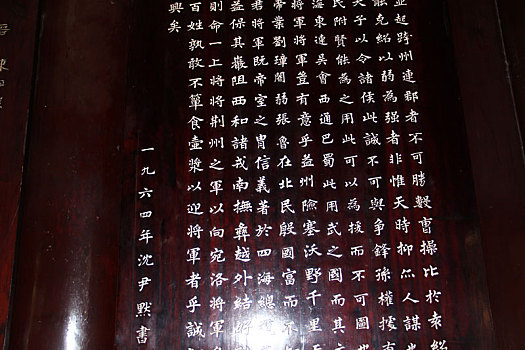 並起跨州連郡者不可勝數曹操比於袁紹
能克紹以弱為强者非惟天時抑亦人謀也
天子以令諸侯此誠不可與爭鋒孫權據有
民附賢能為之用此可以為援而不可圖也
海東連吳會西通巴蜀此用武之國而其
將軍豈有意乎益州險塞沃野千里
帝業劉璋闇弱張魯在北民殷國富而不
君將軍既帝室之胄信義著於四海總
益保其巖阻西和諸戎南撫彝越外結好
則命一上將將荊州之軍以向宛洛將軍
百姓孰敢不簞食壺漿以迎將軍者乎誠
興矣
一九六四年沈尹默書